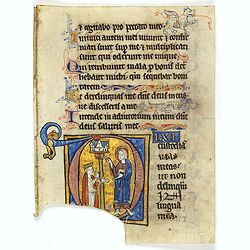 et cogitabo pro peccato meo
nimici autem mei vivunt et confir
mati sunt sup me et multiplicati
sunt qui oderunt me
ui retribuunt mala p bonis
hebant michi qm sequebar boni
tatem
e derelinquas me dne deus meus
ne discesseris a me
ntende in adiutorium meum dne
deus salutis mee
IXI
custodia
uias
meas
ut non
delinqua
in
lingua
mea